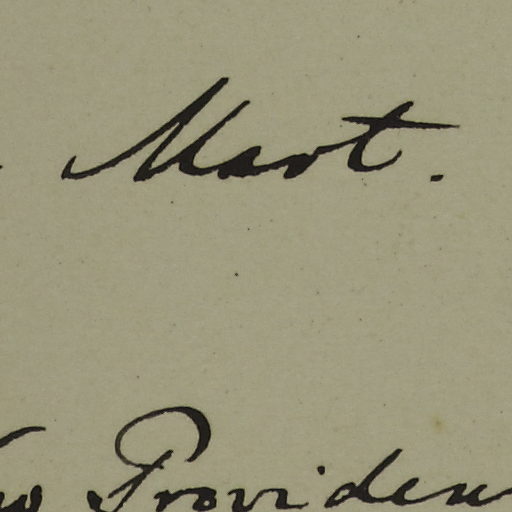 Mart.
Providen